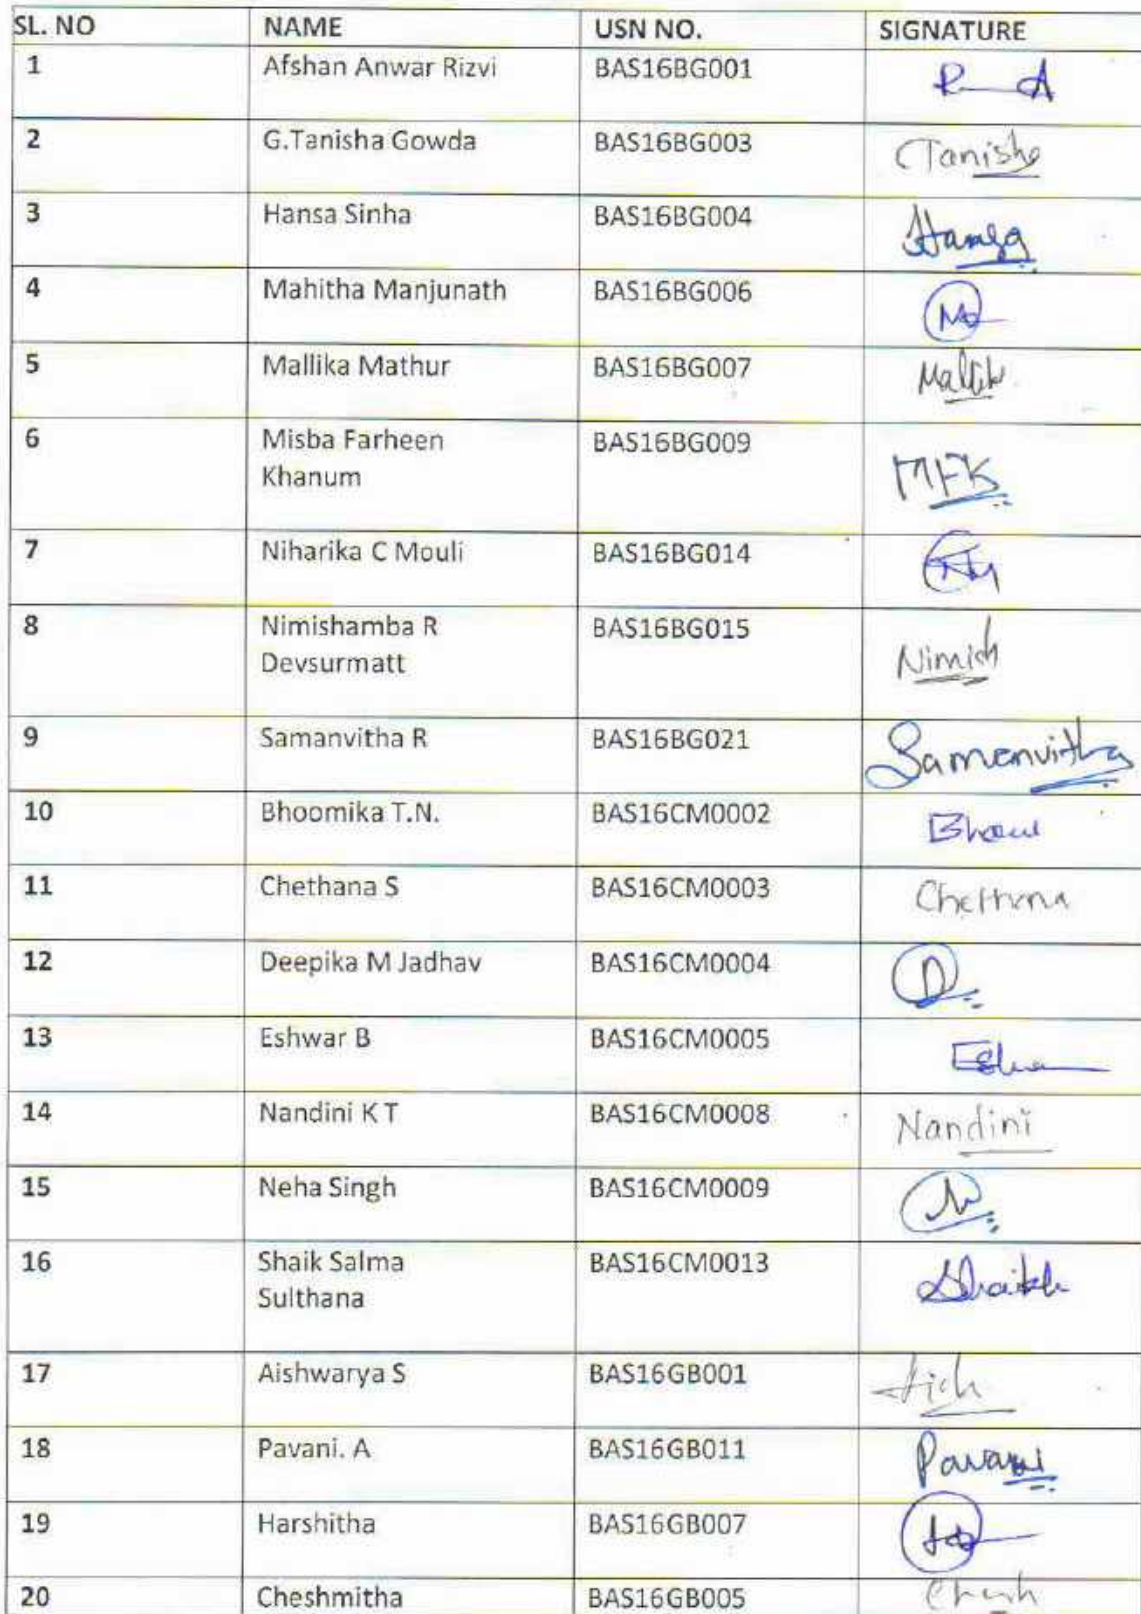 SL. NO NAME USN NO. SIGNATURE
1 Afshan Anwar Rizvi BAS16BG001
2 G.Tanisha Gowda BAS16BG003 Tanisha
3 Hansa Sinha BAS16BG004 Hansa
4 Mahitha Manjunath BAS16BG006
5 Mallika Mathur BAS16BG007
6 Misba Farheen BAS16BG009 MFK
Khanum
7 Niharika C Mouli BAS16BG014
8 Nimishamba R BAS16BG015 Nimish
Devsurmatt
9 Samanvitha R BAS16BG021 Samanvitha
10 Bhoomika T.N. BAS16CM0002
11 Chethana S BAS16CM0003 Chethana
12 Deepika M Jadhav BAS16CM0004 D
13 Eshwar B BAS16CM0005
14 Nandini K T BAS16CM0008 Nandini
15 Neha Singh BAS16CM0009 N
16 Shaik Salma BAS16CM0013 Shaikh
Sulthana
17 Aishwarya S BAS16GB001
18 Pavani. A BAS16GB011 Pavani
19 Harshitha BAS16GB007
20 Cheshmitha BAS16GB005